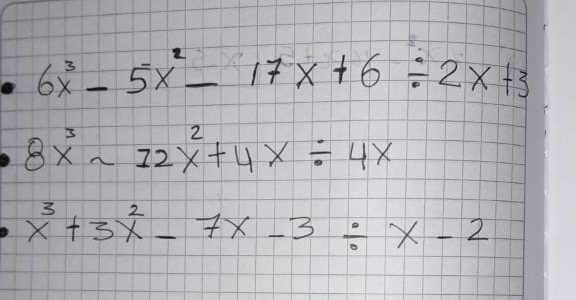 • 6x³ - 5x² - 17x + 6 ÷ 2x + 3
• 8x³ - 12x² + 4x ÷ 4x
• x³ + 3x² - 7x - 3 ÷ x - 2